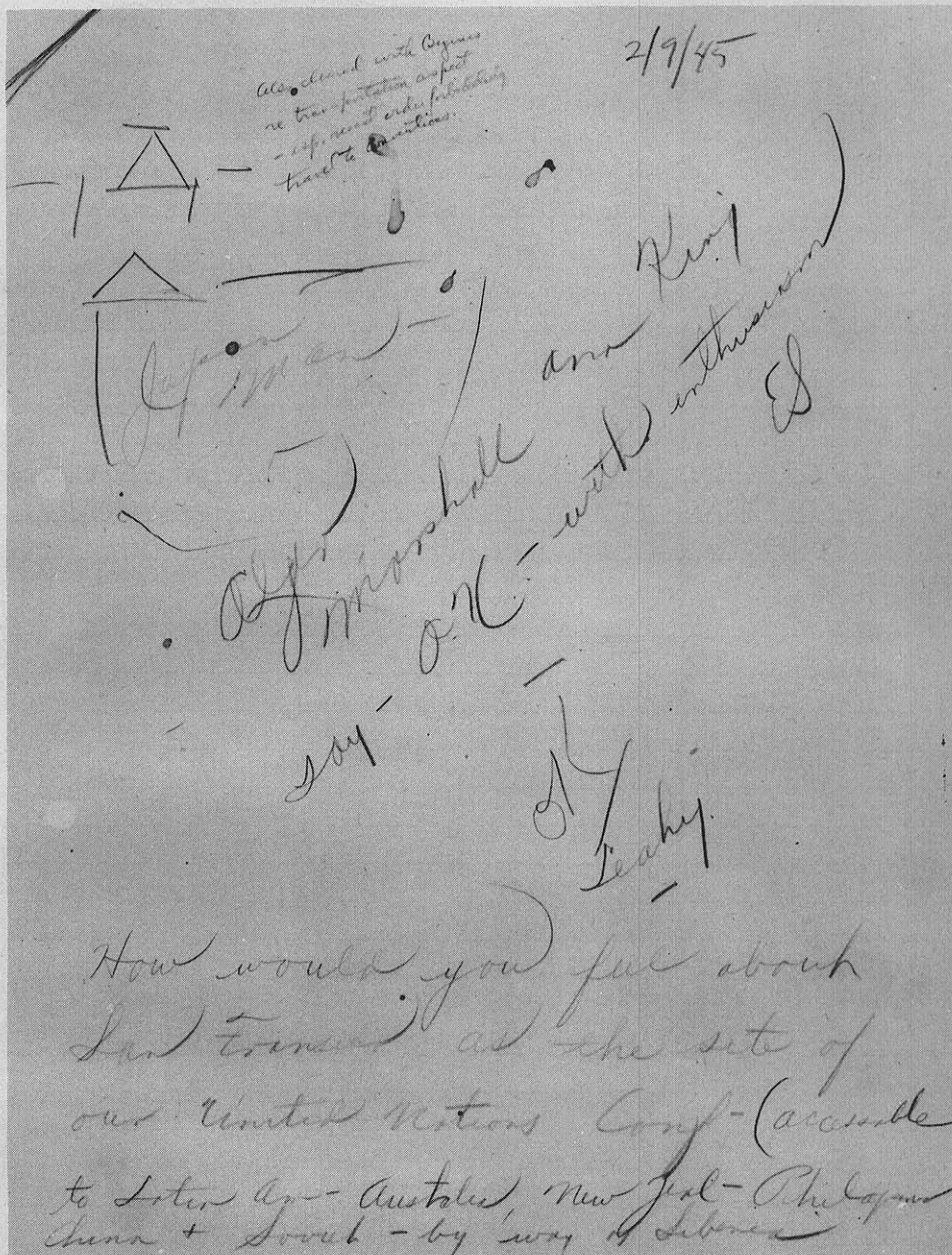 2/9/45
Also cleared with Byrnes
re transportation aspect
- esp. recent order forbidding
travel to conventions.
(Japan
man) -
Alger
Marshall and King
say - O.K. - with enthusiasm)
ES
OK
Leahy
How would you feel about
San Francisco as the site of
our United Nations Conf - (accessable
to Latin Am - Australia, New Zeal - Philipines
China + Soviet - by way of Siberia